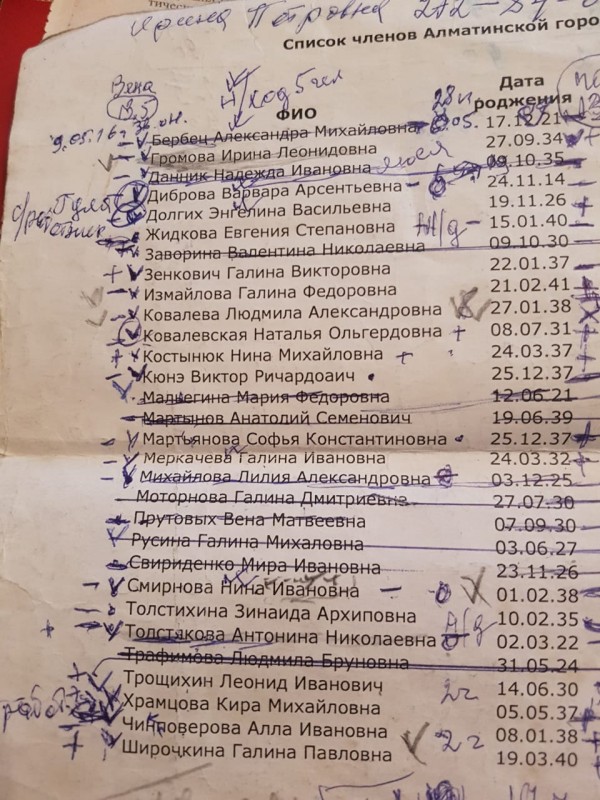 Ирина Петровна 272-
Список членов Алматинской горо
Вена
Дата
роджения
ФИО
9.05.16г
Бербец Александра Михайловна 17.12.21
Громова Ирина Леонидовна 27.09.34
Данник Надежда Ивановна 09.10.35
Диброва Варвара Арсентьевна 24.11.14
Долгих Энгелина Васильевна 19.11.26
Жидкова Евгения Степановна 15.01.40
Заворина Валентина Николаевна 09.10.30
Зенкович Галина Викторовна 22.01.37
Измайлова Галина Федоровна 21.02.41
Ковалева Людмила Александровна 27.01.38
Ковалевская Наталья Ольгердовна + 08.07.31
Костынюк Нина Михайловна + 24.03.37
Кюнэ Виктор Ричардоаич 25.12.37
Малыгина Мария Федоровна 12.06.21
Мартынов Анатолий Семенович 19.06.39
Мартьянова Софья Константиновна 25.12.37
Меркачева Галина Ивановна 24.03.32
Михайлова Лилия Александровна 03.12.25
Моторнова Галина Дмитриевна 27.07.30
Прутовых Вена Матвеевна 07.09.30
Русина Галина Михаловна 03.06.27
Свириденко Мира Ивановна 23.11.26
Смирнова Нина Ивановна 01.02.38
Толстихина Зинаида Архиповна 10.02.35
Толстякова Антонина Николаевна 02.03.22
Трафимова Людмила Бруновна 31.05.24
Трощихин Леонид Иванович 14.06.30
Храмцова Кира Михайловна 2г 05.05.37
Чинноверова Алла Ивановна 2г 08.01.38
Широчкина Галина Павловна 19.03.40